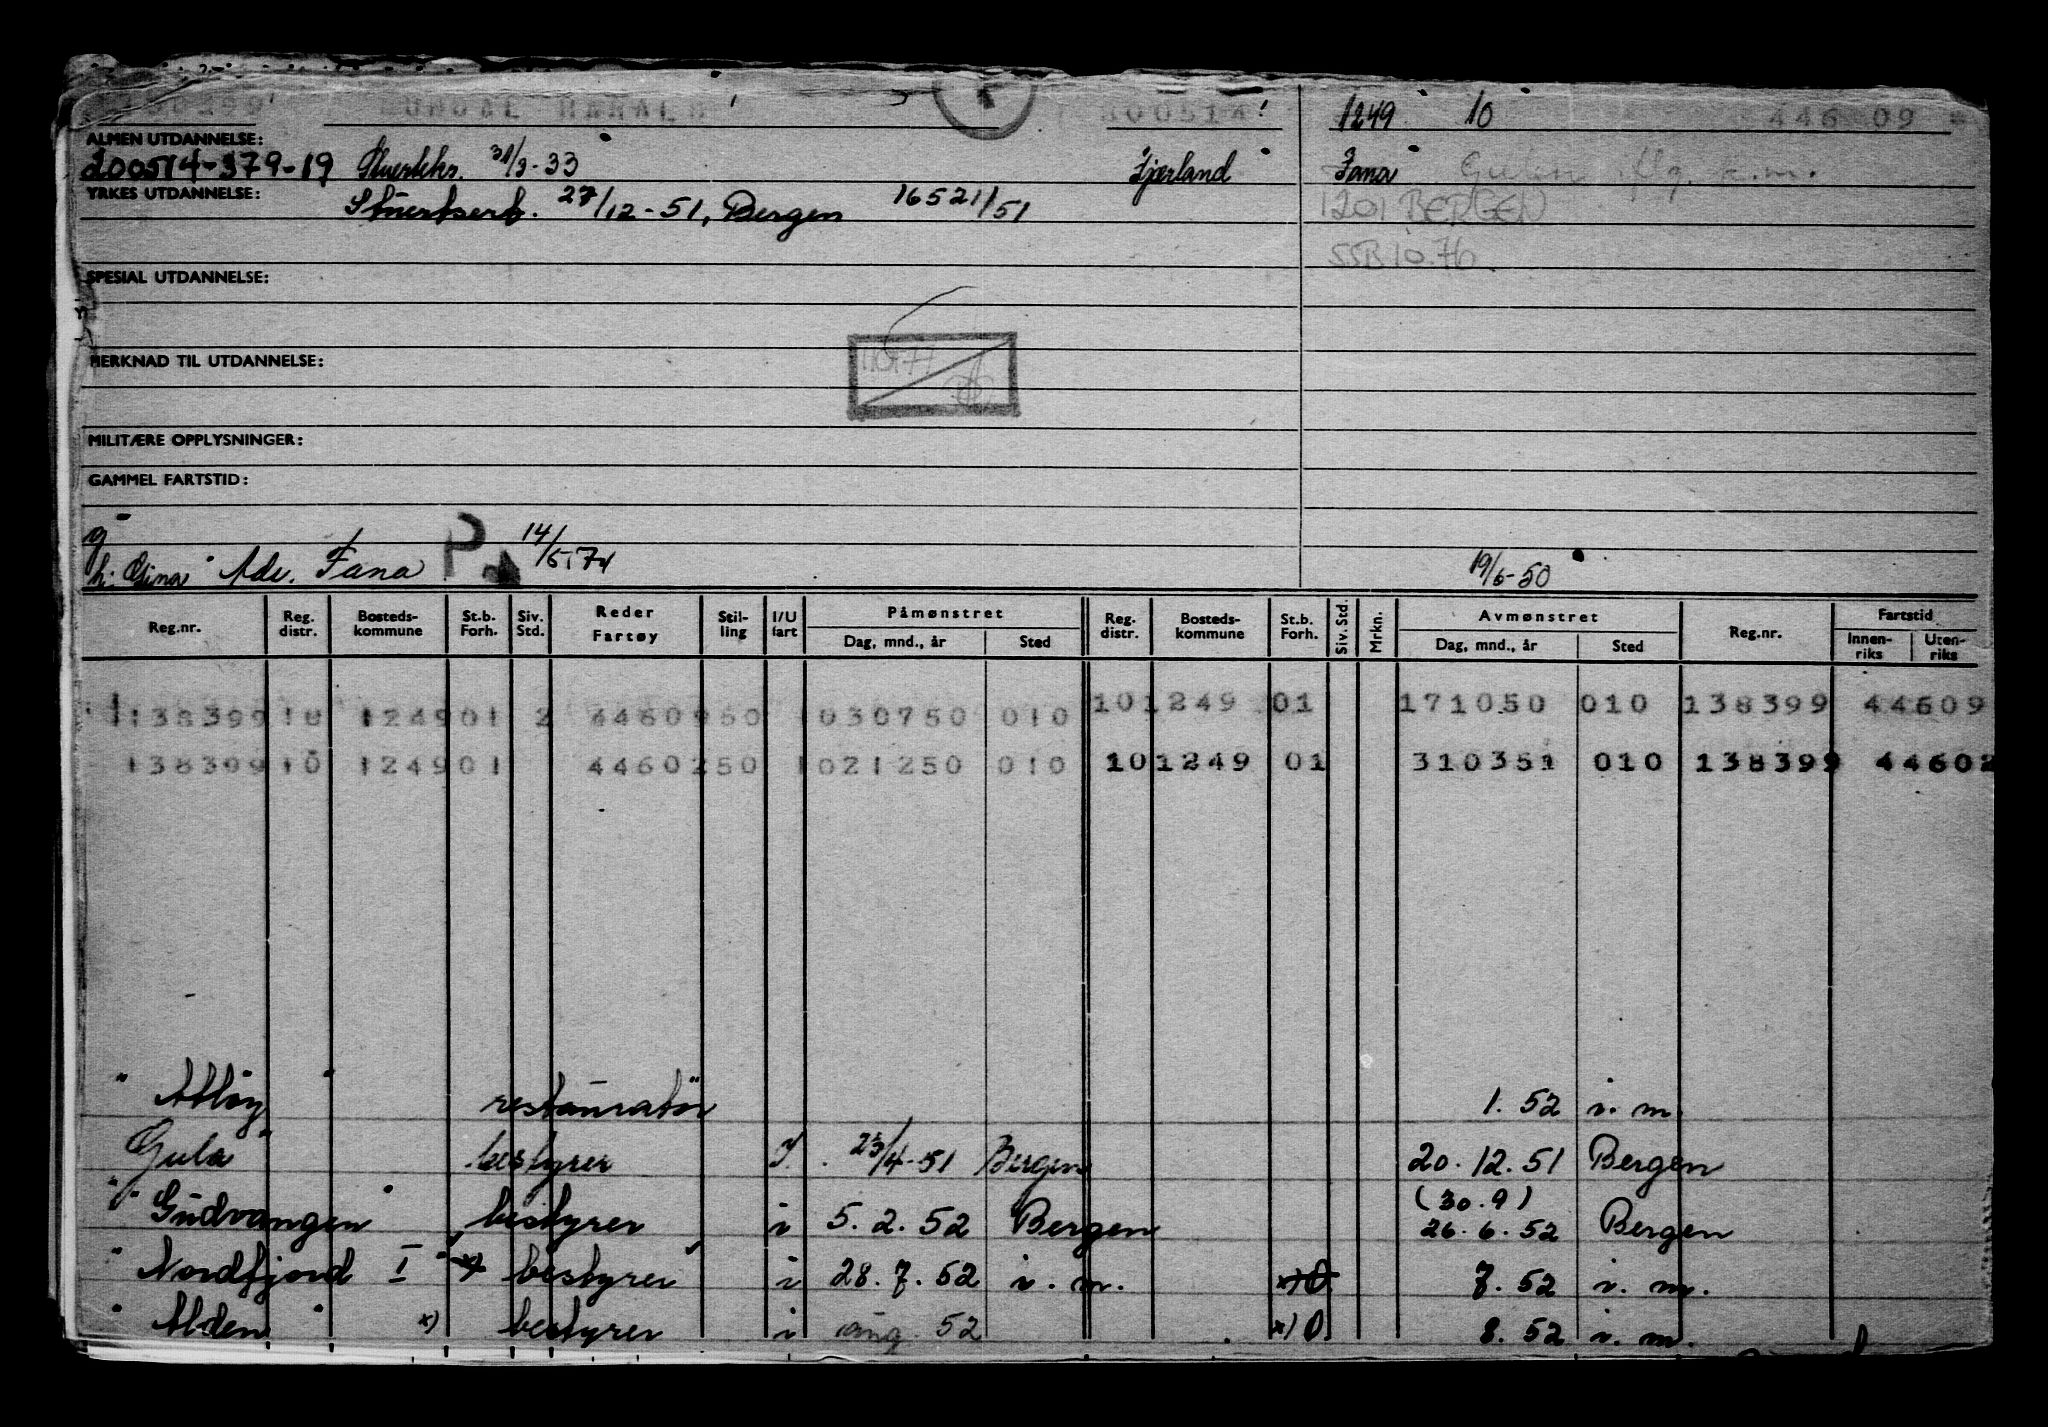 1249 10 446 09
ALMEN UTDANNELSE:
200514-379-19 31/3-33 Fjærland Fana
YRKES UTDANNELSE: 1201 BERGEN
Stuertsert. 27/12-51, Bergen 16521/51
SSB 10.76
SPESIAL UTDANNELSE:
MERKNAD TIL UTDANNELSE:
MILITÆRE OPPLYSNINGER:
GAMMEL FARTSTID:
g
h: Gina Adr. Fana P 14/5 74 19/6-50
Reg.nr. Reg. distr. Bosteds-kommune St.b. Forh. Siv. Std. Reder Fartøy Stil-ling I/U fart Påmønstret Dag, mnd., år Sted Reg. distr. Bosteds-kommune St.b. Forh. Siv. Std. Mrkn. Avmønstret Dag, mnd., år Sted Reg.nr. Fartstid Innen-riks Uten-riks
138399 10 1249 01 2 44609 50 1 030750 010 10 1249 01 171050 010 138399 44609
138399 10 1249 01 44602 50 1 021250 010 10 1249 01 310351 010 138399 44602
" Atløy " restauratør 1. 52 i. m.
Gula " bestyrer I. 23/4-51 Bergen 20. 12. 51 Bergen
(30.9)
" Gudvangen " bestyrer i 5. 2. 52 Bergen 26. 6. 52 Bergen
" Nordfjord I " x) bestyrer i 28. 7. 52 i. m. x) 0 7. 52 i. m.
" Alden " x) bestyrer i aug. 52 x) 0 8. 52 i. m.